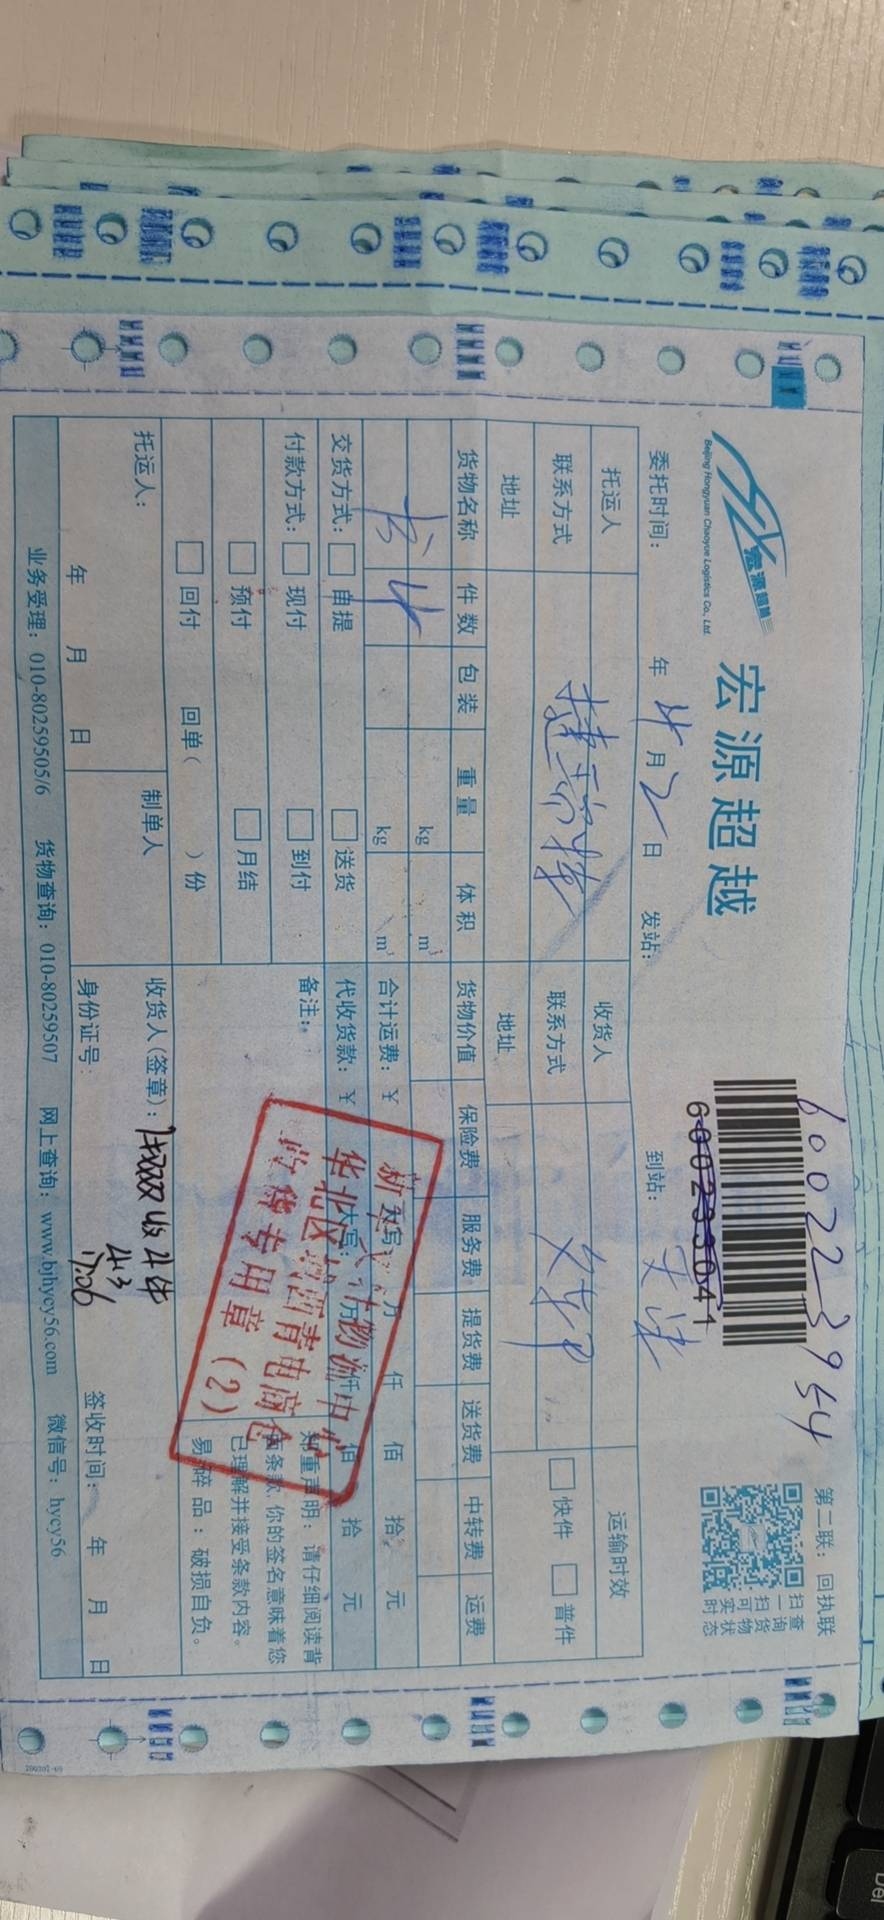 宏源超越
Beijing Hongyuan Chaoyue Logistics Co., Ltd.
宏源超越
600223954
60023304 1
第二联：回执联
扫一扫可实时
查询货物状态
委托时间： 年 4 月 2 日 发站： 到站： 天津
托运人 收货人 运输时效
联系方式 联系方式 快件 普件
地址 地址
货物名称 件数 包装 重量 体积 货物价值 保险费 服务费 提货费 送货费 中转费 运费
kg m³
4 kg m³ 合计运费：¥ 大写： 万 仟 佰 拾 元
交货方式： 自提 送货 代收货款：¥ 大写： 万 仟 佰 拾 元
付款方式： 现付 到付 备注：
预付 月结
回付 回单（ ）份
郑重声明：请仔细阅读背
面条款，你的签名意味着您
已理解并接受条款内容。
易碎品：破损自负。
物流中心
华北区 西青电商仓
收货专用章（2）
托运人： 制单人 收货人（签章）： 收4件
4.3
年 月 日 身份证号： 17:06 签收时间： 年 月 日
业务受理：010-80259505/6 货物查询：010-80259507 网上查询：www.bjhycy56.com 微信号：hycy56
Del